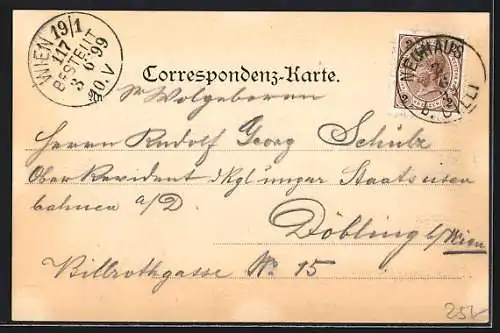 WIEN 19/1
117
BESTELLT
3 6 99
10.V
NEUHAUS
B. CILLI
Correspondenz-Karte.
An Sr Wolgeboren
Herrn Rudolf Georg Schulz
Ober Revident d kgl ungar Staatseisen
bahnen a/D
Döbling b/Wien
Billrothgasse No 15